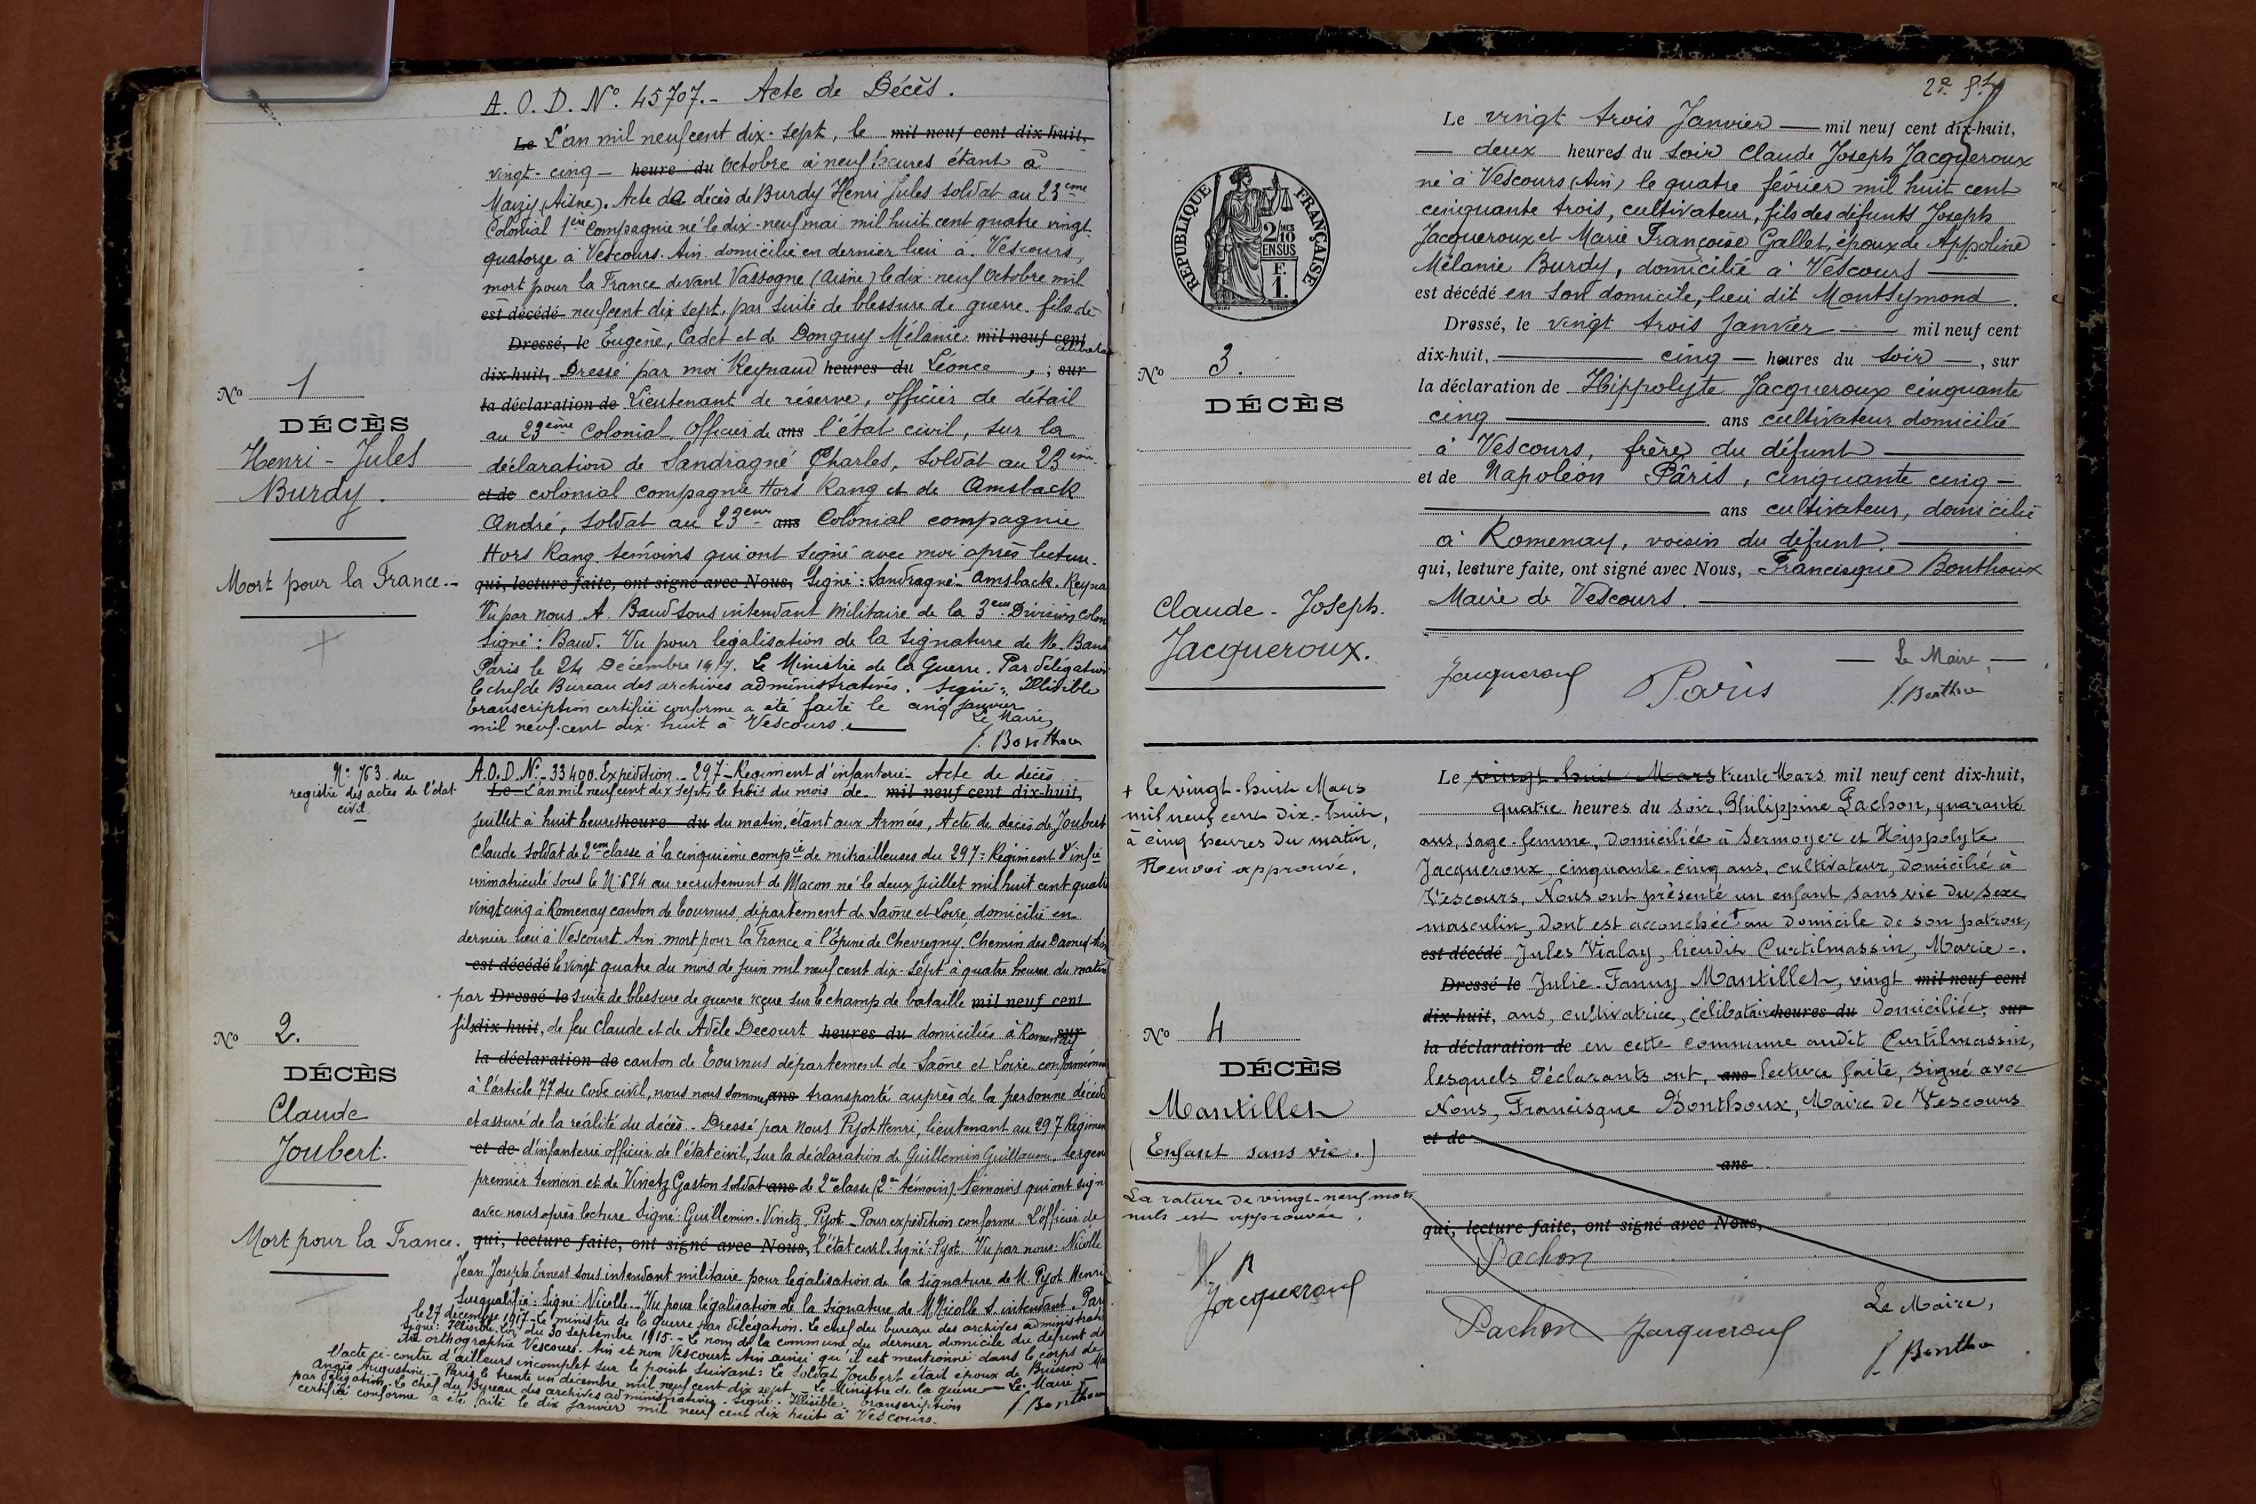 A. O. D. N° 45707.- Acte de Décès.
Le L'an mil neuf cent dix-sept, le mil neuf cent dix-huit,
vingt-cinq — heure du Octobre à neuf heures étant à
Maizy (Aisne). Acte de décès de Burdy Henri Jules soldat au 23eme
Colonial 1ere Compagnie né le dix-neuf mai mil huit cent quatre vingt
quatorze à Vescours. Ain domicilié en dernier lieu à Vescours,
mort pour la France devant Vassogne (Aisne) le dix-neuf Octobre mil
est décédé neuf cent dix sept, par suite de blessure de guerre. fils de
Dressé, le Eugène, Cadet et de Donguy Mélanie mil neuf cent
dix-huit, Dressé par moi Reynaud heures du Léonce , ; sur
la déclaration de Lieutenant de réserve, officier de détail
au 23eme Colonial. Officier de ans l'état civil, sur la
déclaration de Sandragné Charles, soldat au 23em
et de colonial compagnie Hors Rang et de Amsback
André, soldat au 23eme ans Colonial compagnie
Hors Rang. témoins qui ont signé avec moi après lecture.
qui, lecture faite, ont signé avec Nous, Signé: Sandragné - Amsback. Reyna
Vu par nous A. Baud sous intendant militaire de la 3em Division Colon
Signé: Baud. Vu pour légalisation de la signature de M. Baud
Paris le 24 Décembre 1917. Le Ministre de la Guerre. Par délégation
le chef de Bureau des archives administratives. Signé: Illisible
transcription certifiée conforme a été faite le cinq janvier
mil neuf-cent dix-huit à Vescours.
Le Maire,
f. Bonthou
N° 1
DÉCÈS
Henri-Jules
Burdy.
Mort pour la France.-
N° 763 du
registre des actes de l'état
civil.
A.O.D. N° - 33400. Expédition - 297 - Régiment d'infanterie - Acte de décès
Le L'an mil neuf cent dix sept, le trois du mois de mil neuf cent dix-huit,
juillet à huit heures heure du du matin, étant aux Armées, Acte de décès de Joubert
Claude soldat de 2em classe à la cinquième compie de mitrailleuses du 297e Régiment d'infie
immatriculé sous le N° 684 au recrutement de Macon né le deux juillet mil huit cent quatre
vingt cinq à Romenay canton de Tournus, département de Saône et Loire, domicilié en
dernier lieu à Vescourt Ain mort pour la France à l'Epine de Chevregny, Chemin des Dames
est décédé le vingt quatre du mois de juin mil neuf cent dix-sept à quatre heures du matin
par Dressé le suite de blessure de guerre reçue sur le champ de bataille mil neuf cent
fils dix huit, de feu Claude et de Adèle Decourt heures du domiciliés à Romenay sur
la déclaration de canton de Tournus département de Saône et Loire conformémen
à l'article 77 du Code civil, nous nous sommes ans transporté auprès de la personne décédé
et assuré de la réalité du décès. - Dressé par nous Pyot Henri, lieutenant au 297 Régimen
et de d'infanterie officier de l'état civil, sur la déclaration de Guillemin Guillaume, sergen
premier témoin et de Vinetz Gaston soldat ans de 2em classe (2em témoin) - témoins qui ont sign
avec nous après lecture Signé Guillemin. Vinetz. Pyot - Pour expédition conforme L'officier de
qui, lecture faite, ont signé avec Nous, l'état civil. Signé: Pyot. Vu par nous: Nicolle
Jean Joseph Ernest sous intendant militaire pour légalisation de la signature de M. Pyot Henri
Susqualifié. Signé Nicolle. - Vu pour légalisation de la signature de M. Nicolle S. intendant. Paris
le 27 décembre 1917 - Le ministre de la guerre par délégation. Le chef du bureau des archives administrati
Signé: Illisible. Loi du 30 septembre 1915. - Le nom de la commune du dernier domicile du défunt doit
être orthographié Vescours. Ain et non Vescourt Ain ainsi qu'il est mentionné dans le corps de
l'acte ci-contre d'ailleurs incomplet sur le point suivant: Le soldat Joubert était époux de Buisson Ma
Anaïs Augustine. - Paris le trente un décembre mil neuf cent dix sept - Le Ministre de la guerre
par délégation. Le chef du Bureau des archives administratives. Signé. Illisible. transcription
certifiée conforme a été faite le dix janvier mil neuf cent dix huit à Vescours.
Le Maire
f. Bonthou
N° 2.
DÉCÈS
Claude
Joubert.
Mort pour la France.
RÉPUBLIQUE FRANÇAISE
2/10
EN SUS
F.
1.
N° 3.
DÉCÈS
Claude-Joseph.
Jacqueroux.
Le vingt trois Janvier — mil neuf cent dix-huit,
— deux heures du soir Claude Joseph Jacqueroux
né à Vescours (Ain) le quatre février mil huit cent
cinquante trois, cultivateur, fils des défunts Joseph
Jacqueroux et Marie Françoise Gallet, époux de Appoline
Mélanie Burdy, domicilié à Vescours —
est décédé en son domicile, lieu dit Montsymond.
Dressé, le vingt trois Janvier — mil neuf cent
dix-huit, — cinq — heures du soir —, sur
la déclaration de Hippolyte Jacqueroux cinquante
cinq — ans cultivateur domicilié
à Vescours, frère du défunt —
et de Napoléon Pâris, cinquante cinq —
— ans cultivateur, domicilié
à Romenay, voisin du défunt. —
qui, lecture faite, ont signé avec Nous, Francisque Bonthoux
Maire de Vescours. —
Jacqueroux
Paris
— Le Maire, —
f. Bonthou
+ le vingt-huit Mars
mil neuf cent dix-huit,
à cinq heures du matin,
Renvoi approuvé.
N° 4
DÉCÈS
Mantillet
(Enfant sans vie.)
La rature de vingt-neuf mots
nuls est approuvée.
Jacqueroux
Le vingt huit Mars trente Mars mil neuf cent dix-huit,
quatre heures du soir, Philippine Pachon, quarante
ans, sage-femme, domiciliée à Sermoyer et Hippolyte
Jacqueroux, cinquante-cinq ans, cultivateur, domicilié à
Vescours, Nous ont présenté un enfant sans vie du sexe
masculin, dont est accouchée + au domicile de son patron,
est décédé Jules Vialay, lieudit Curtilmassin, Marie-
Dressé le Julie-Fanny Mantillet, vingt mil neuf cent
dix-huit, ans, cultivatrice, célibataire heures du domiciliée, sur
la déclaration de en cette commune audit Curtilmassin,
lesquels déclarants ont, ans lecture faite, signé avec
Nous, Francisque Bonthoux, Maire de Vescours
et de
ans
qui, lecture faite, ont signé avec Nous,
Pachon
Pachon
Jacqueroux
Le Maire,
f. Bonthou